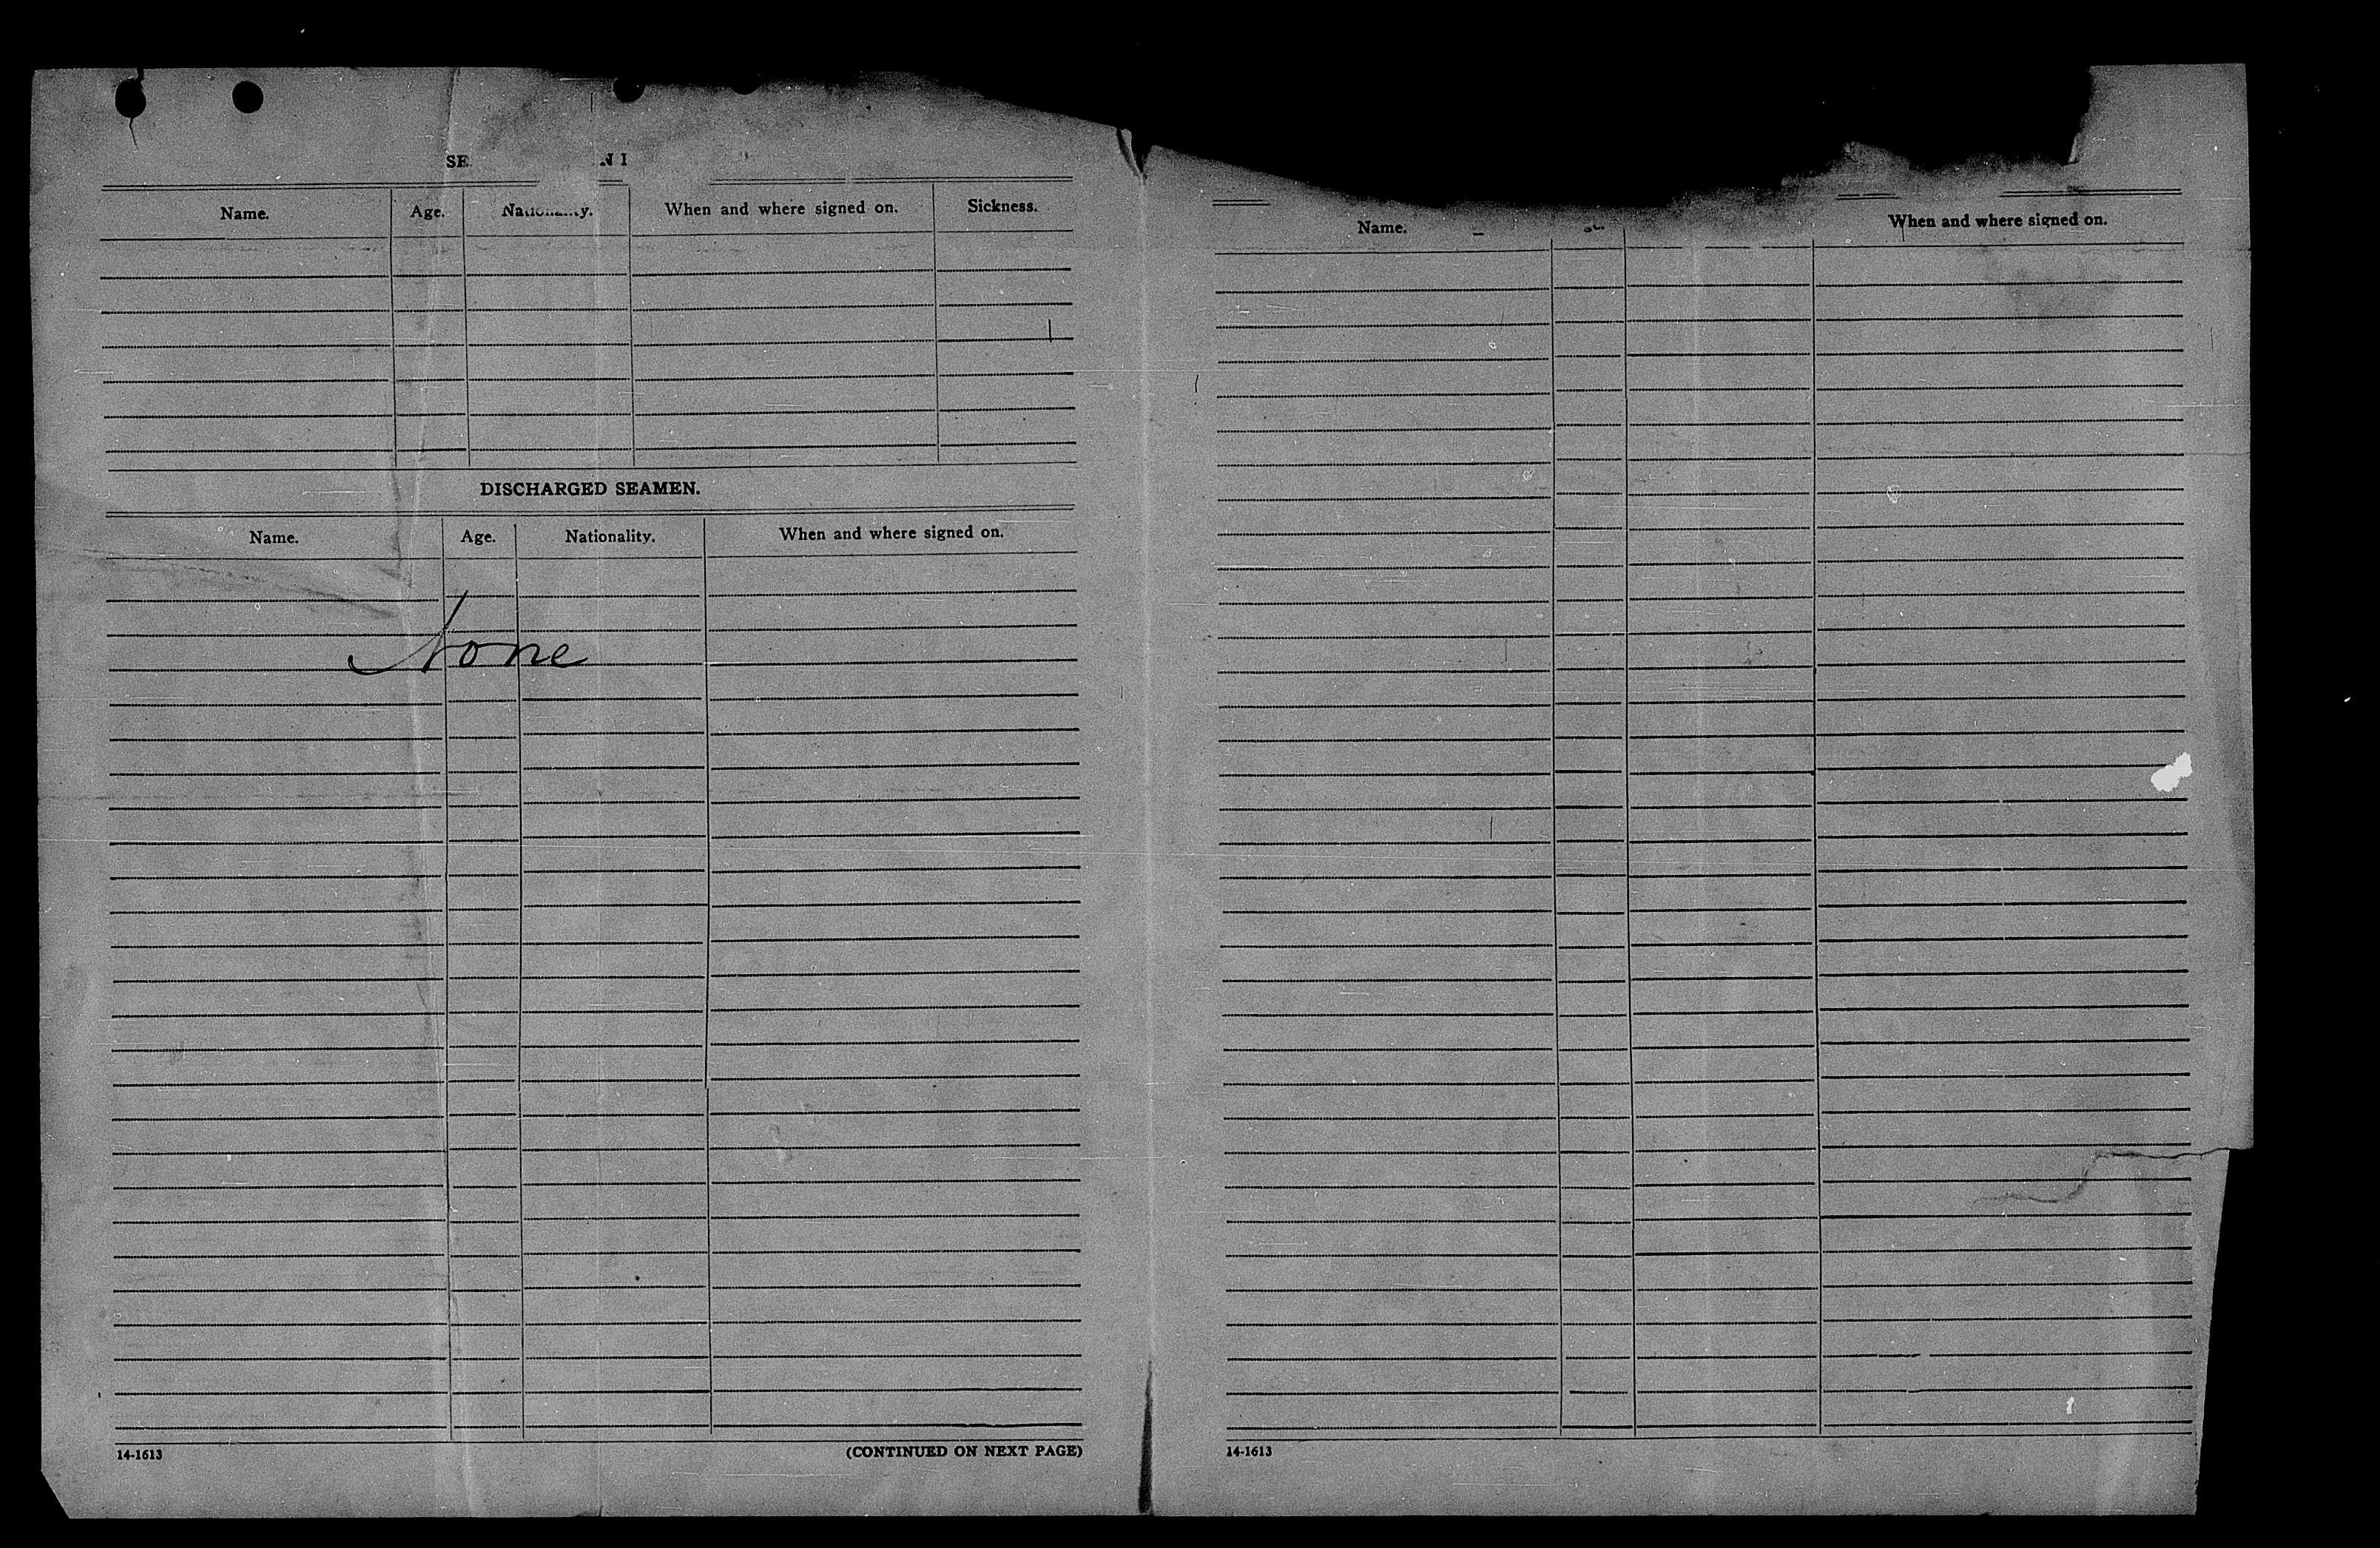 Name. Age. When and where signed on. Sickness.
DISCHARGED SEAMEN.
Name. Age. Nationality. When and where signed on.
None
14-1613 (CONTINUED ON NEXT PAGE)
Name. When and where signed on.
14-1613